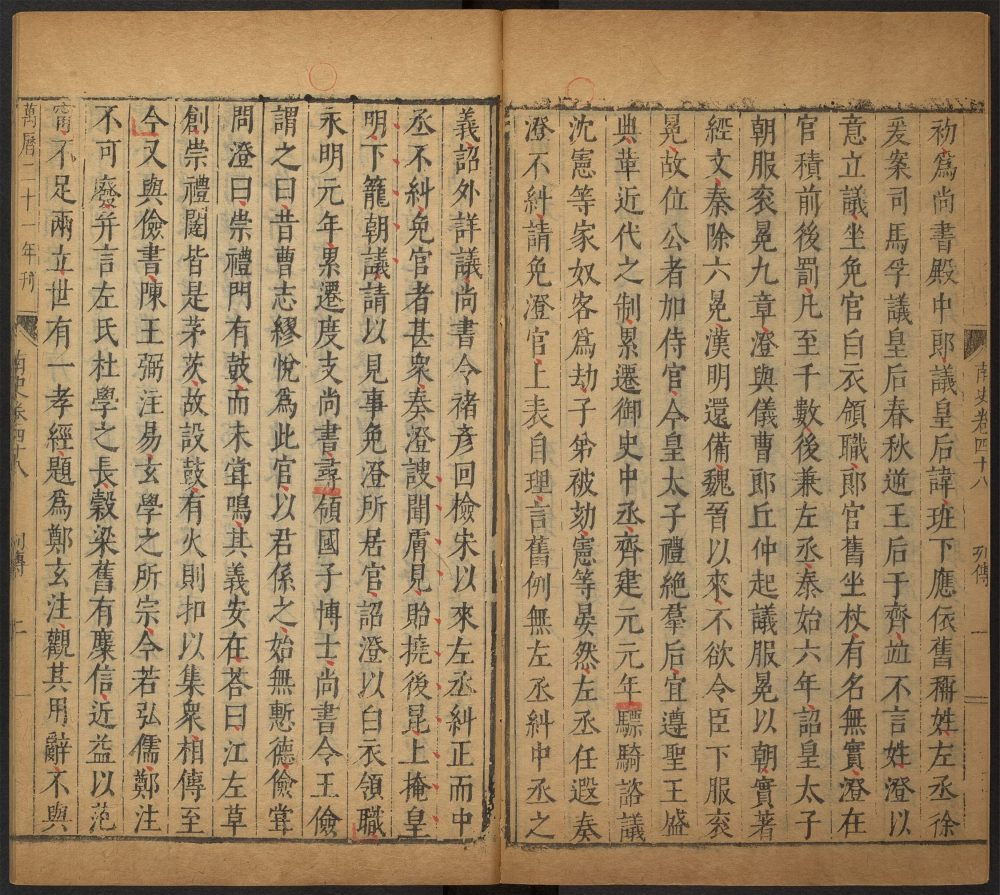 南史卷四十八 列傳 一
初爲尚書殿中郎議皇后諱班下應依舊稱姓左丞徐
爰案司馬孚議皇后春秋逆王后于齊並不言姓澄以
意立議坐免官白衣領職郎官舊坐杖有名無實澄在
官積前後罰凡至千數後兼左丞泰始六年詔皇太子
朝服衮冕九章澄與儀曹郎丘仲起議服冕以朝實著
經文秦除六冕漢明還備魏晉以來不欲令臣下服衮
冕故位公者加侍官今皇太子禮絶羣后宜遵聖王盛
典革近代之制累遷御史中丞齊建元元年驃騎諮議
沈憲等家奴客爲劫子弟被劾憲等晏然左丞任遐奏
澄不糾請免澄官上表自理言舊例無左丞糾中丞之
義詔外詳議尚書令褚彦回檢宋以來左丞糾正而中
丞不糾免官者甚衆奏澄謏聞膚見貽撓後昆上掩皇
明下籠朝議請以見事免澄所居官詔澄以白衣領職
永明元年累遷度支尚書尋領國子博士尚書令王儉
謂之曰昔曹志繆悅爲此官以君係之始無慙德儉嘗
問澄曰崇禮門有鼓而未嘗鳴其義安在荅曰江左草
創崇禮闥皆是茅茨故設鼓有火則扣以集衆相傳至
今又與儉書陳王弼注易玄學之所宗今若弘儒鄭注
不可廢并言左氏杜學之長穀梁舊有麋信近益以范
甯不足兩立世有一孝經題爲鄭玄注觀其用辭不與
萬曆二十一年刊
南史卷四十八 列傳